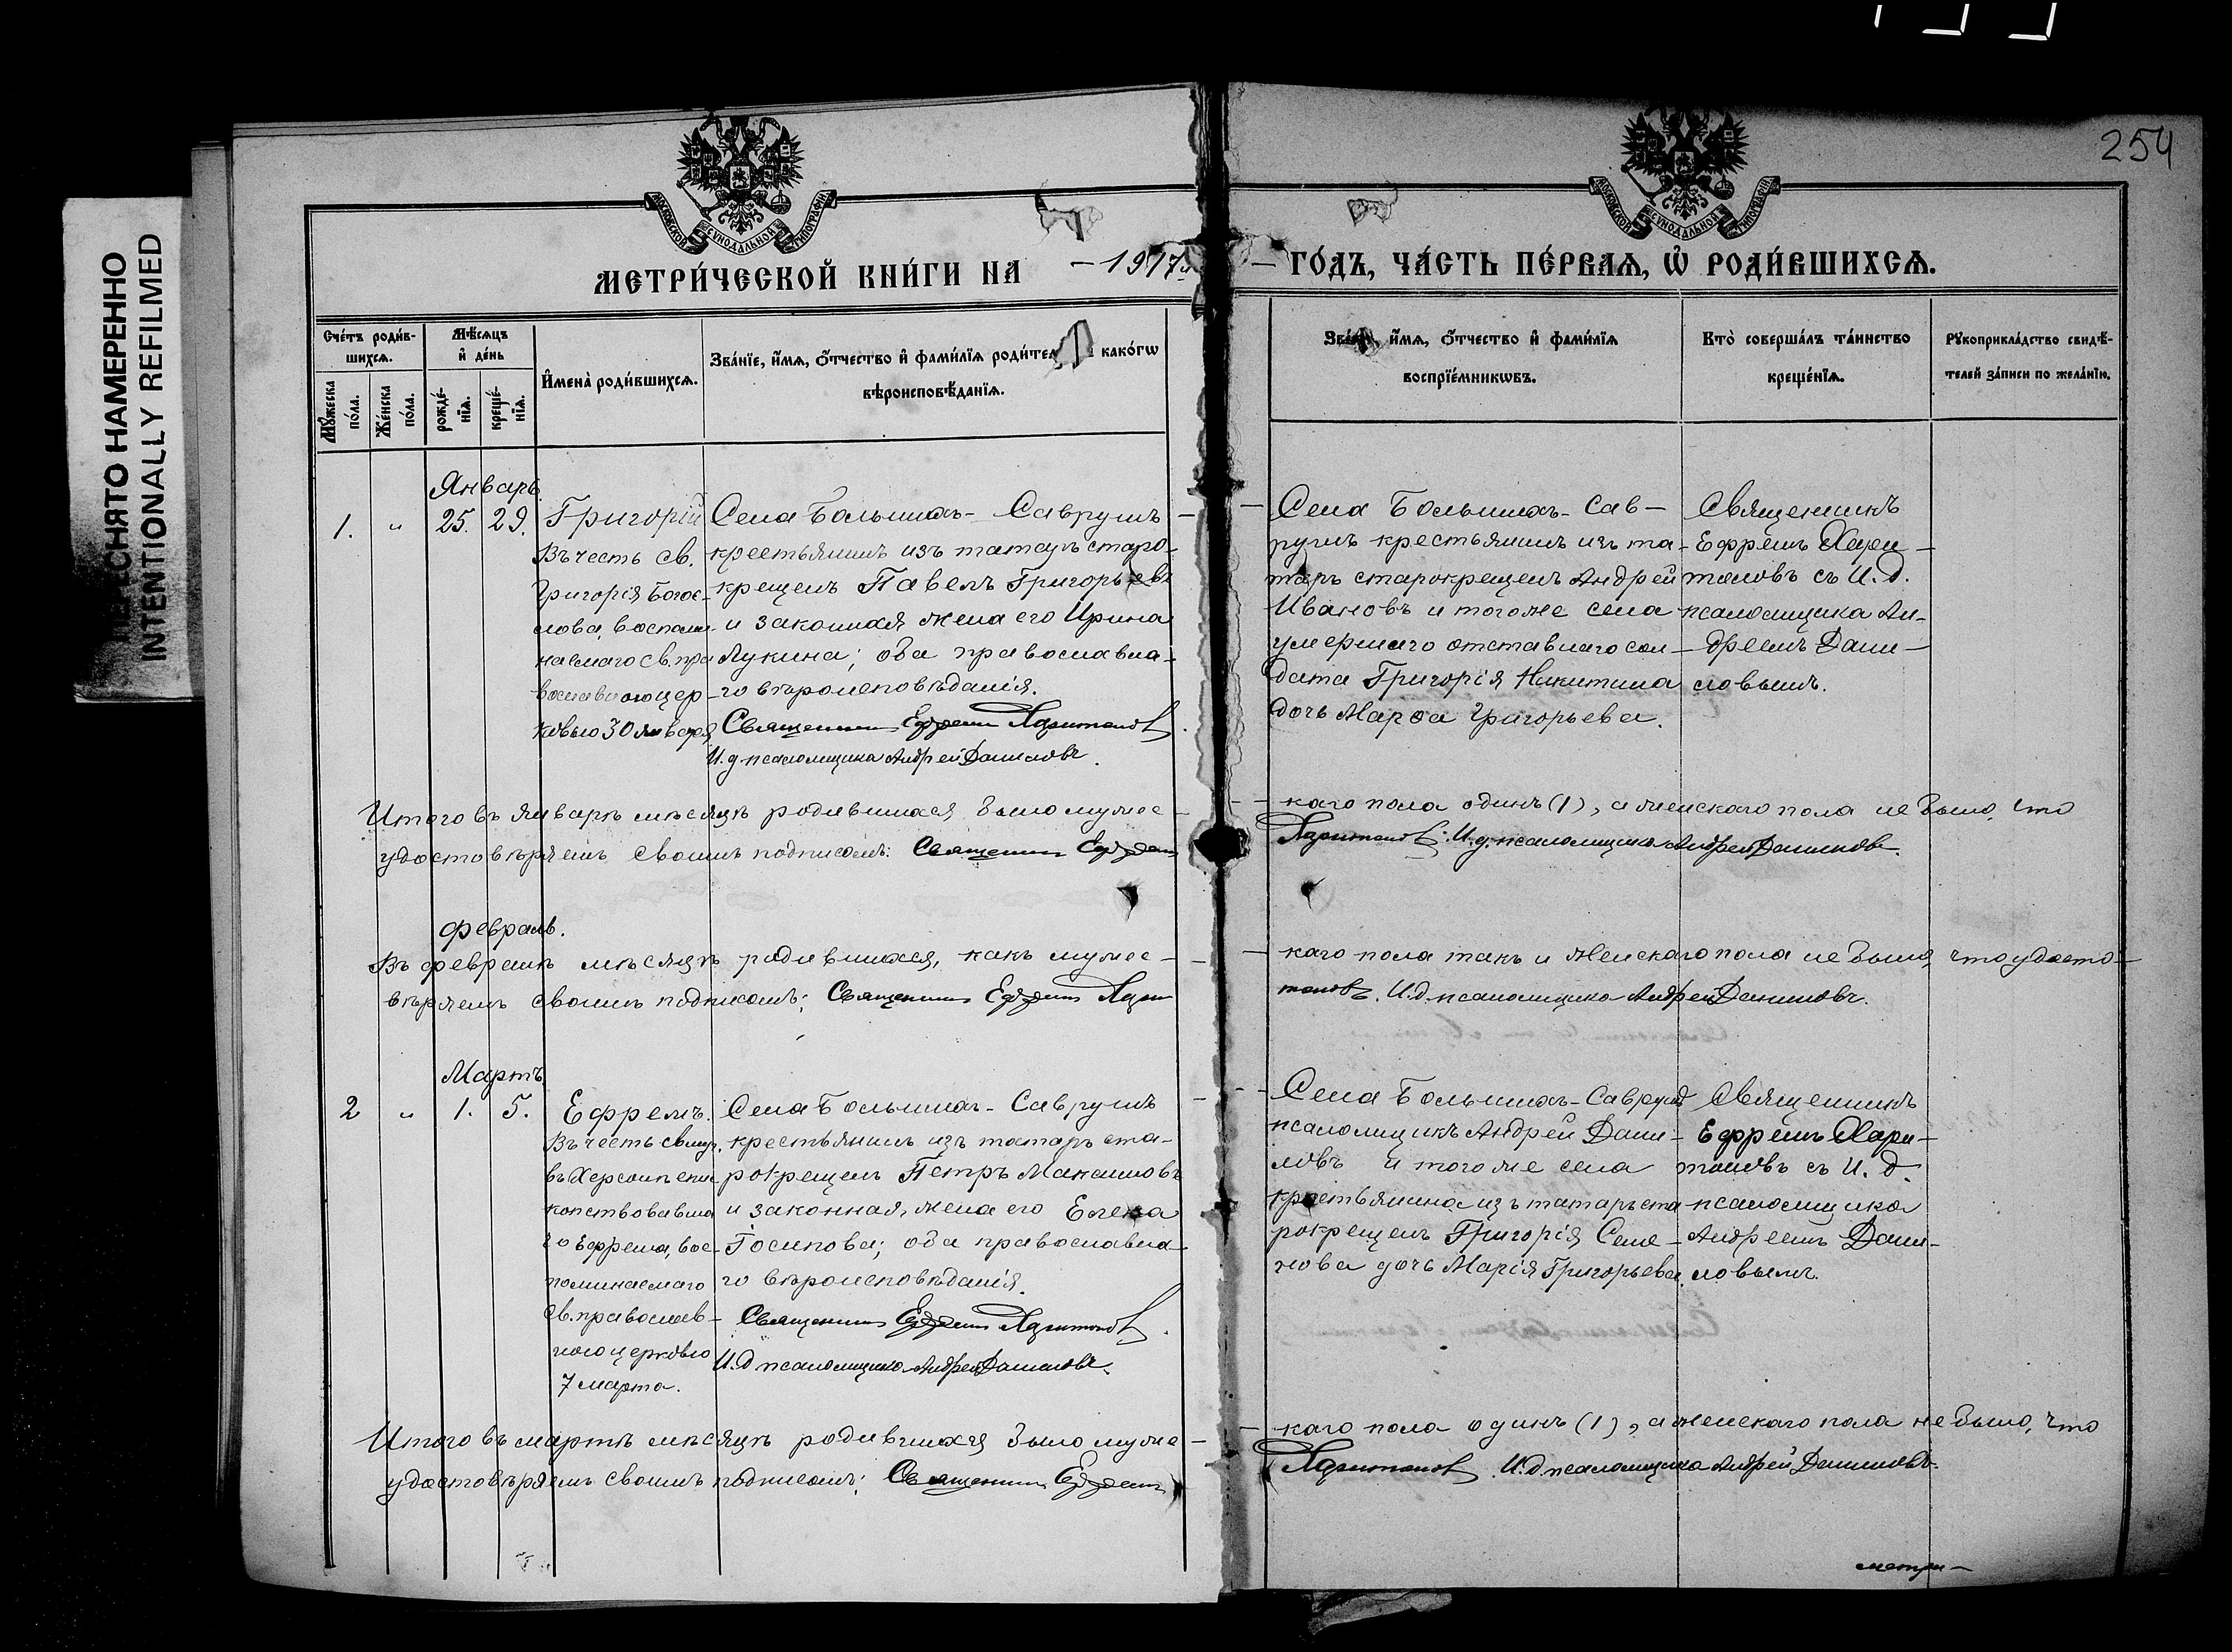 254
ПЕРЕСНЯТО НАМЕРЕННО
INTENTIONALLY REFILMED
МОСКОВСКОЙ СѴНОДАЛЬНОЙ ТИПОГРАФІИ
МОСКОВСКОЙ СѴНОДАЛЬНОЙ ТИПОГРАФІИ
МЕТРИ́ЧЕСКОЙ КНИ́ГИ НА – 1917 – ГО́ДЪ, ЧА́СТЬ ПЕ́РВАѦ, Ѡ҆ РОДИ́ВШИХСѦ.
Сче́тъ роди́в-
шихсѧ.
Мꙋ́жеска по́ла.
Же́нска по́ла.
Мѣ́сѧцъ
и҆ де́нь
рожде́-
нїѧ.
креще́-
нїѧ.
И҆мена̀ роди́вшихсѧ.
Зва́нїе, и҆́мѧ, ѻ҆́тчество и҆ фами́лїѧ роди́тел како́гѡ
вѣроисповѣ́данїѧ.
и҆́мѧ, ѻ҆́тчество и҆ фами́лїѧ
воспрїе́мникѡвъ.
Кто̀ соверша́лъ та́инство
креще́нїѧ.
Рꙋкоприкла́дство свидѣ́-
телей за́писи по жела́нїю.
Январь.
1. „ 25. 29.
Григорій
Въ честь св.
Григорія Богос-
лова, воспоми-
наемаго св. пра
вославною цер-
ковью 30 января
Села Большихъ- Саврушъ
крестьянинъ изъ татаръ старо-
крещенъ Павелъ Григорьевъ
и законная жена его Ирина
Лукина; оба православна-
го вѣроисповѣданія.
Священникъ Ефремъ Харитоновъ.
И. д. псаломщика Андрей Даниловъ.
Села Большихъ- Сав-
рушъ крестьянинъ изъ та-
таръ старокрещенъ Андрей
Ивановъ и того же села
умершаго отставнаго сол-
дата Григорія Никитина
дочь Марѳа Григорьева.
Священникъ
Ефремъ Хари-
тоновъ съ И. д.
псаломщика Ан-
дреемъ Дани-
ловымъ.
Итого въ январѣ мѣсяцѣ родившихся было мужес- каго пола одинъ (1), а женскаго пола не было, что
удостовѣряемъ своимъ подписомъ: Священникъ Ефремъ Харитоновъ. И. д. псаломщика Андрей Даниловъ.
Февраль.
Въ февралѣ мѣсяцѣ родившихся, какъ мужес- каго пола такъ и женскаго пола не было, что удосто-
вѣряемъ своимъ подписомъ: Священникъ Ефремъ Хари тоновъ. И. д. псаломщика Андрей Даниловъ.
Мартъ
2 „ 1. 5.
Ефремъ.
Въ честь св. муч.
въ Херсонѣ епи
копствовавша
го Ефрема, вос-
поминаемаго
св. православ-
ною церковью
7 марта.
Села Большихъ- Саврушъ
крестьянинъ изъ татаръ ста-
рокрещенъ Петръ Максимовъ
и законная жена его Елена
Іосипова; оба православна-
го вѣроисповѣданія.
Священникъ Ефремъ Харитоновъ.
И. д псаломщика Андрей Даниловъ.
Села Большихъ- Саврушъ
псаломщикъ Андрей Дани-
ловъ и того же села
крестьянина изъ татаръ ста
рокрещенъ Григорія Семе-
нова дочь Марія Григорьева.
Священникъ
Ефремъ Хари-
тоновъ съ И. д.
псаломщика
Андреемъ Дани-
ловымъ.
Итого въ мартѣ мѣсяцѣ родившихся было муже- каго пола одинъ (1), а женскаго пола не было, что
удостовѣряемъ своимъ подписомъ: Священникъ Ефремъ Харитоновъ. И. д псаломщика Андрей Даниловъ.
метри-